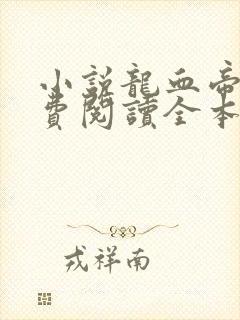 小說龍血帝
費閱讀全本
戎祥南